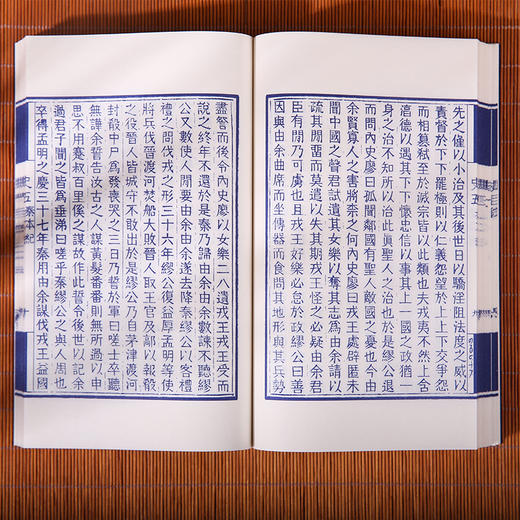 先之僅以小治及其後世日以驕淫阻法度之威以
責督於下下罷極則以仁義怨望於上上下交爭怨
而相篡弒至於滅宗皆以此類也夫戎夷不然上含
淳德以遇其下下懷忠信以事其上一國之政猶一
身之治不知所以治此真聖人之治也於是繆公退
而問內史廖曰孤聞鄰國有聖人敵國之憂也今由
余賢寡人之害將奈之何內史廖曰戎王處辟匿未
聞中國之聲君試遺其女樂以奪其志為由余請以
疏其閒留而莫遣以失其期戎王怪之必疑由余君
臣有閒乃可虜也且戎王好樂必怠於政繆公曰善
因與由余曲席而坐傳器而食問其地形與其兵勢
盡詧而後令內史廖以女樂二八遺戎王戎王受而
說之終年不還於是秦乃歸由余由余數諫不聽繆
公又數使人閒要由余由余遂去降秦繆公以客禮
禮之問伐戎之形三十六年繆公復益厚孟明等使
將兵伐晉渡河焚船大敗晉人取王官及鄗以報殽
之役晉人皆城守不敢出於是繆公乃自茅津渡河
封殽中尸為發喪哭之三日乃誓於軍曰嗟士卒聽
無譁余誓告汝古之人謀黃髮番番則無所過以申
思不用蹇叔百里傒之謀故作此誓令後世以記余
過君子聞之皆為垂涕曰嗟乎秦繆公之與人周也
卒得孟明之慶三十七年秦用由余謀伐戎王益國
史五 秦本紀